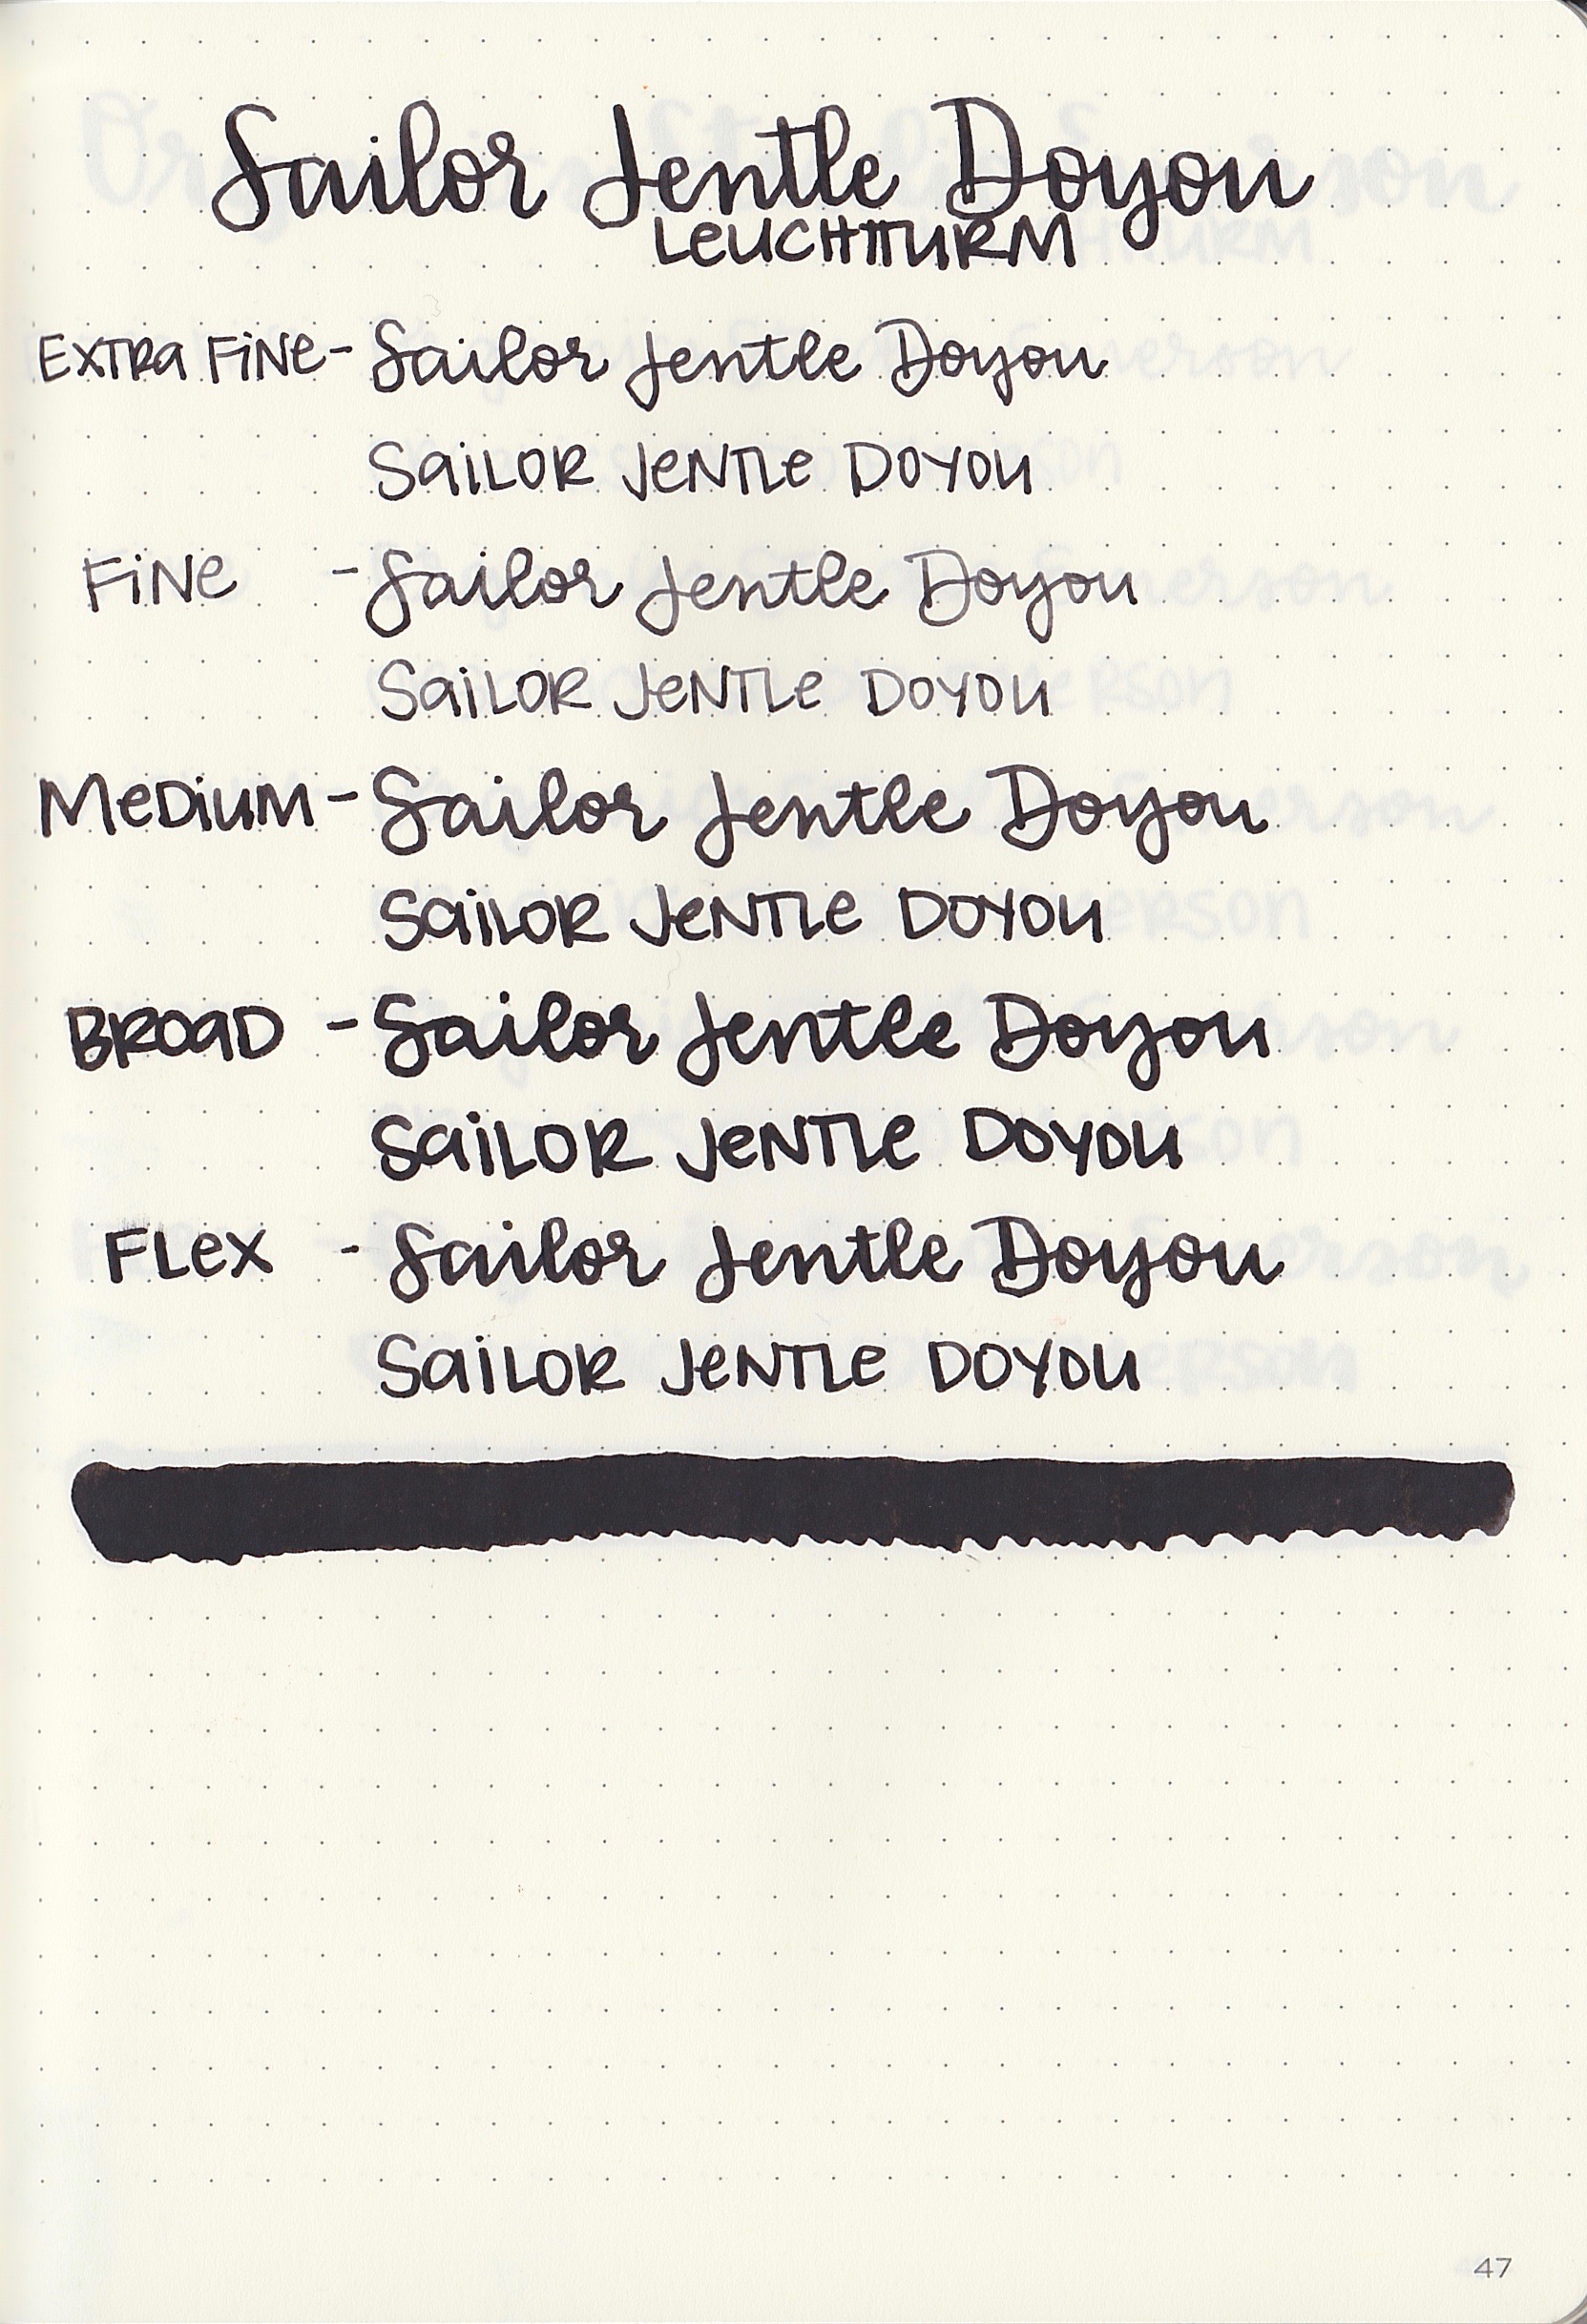 Sailor Jentle Doyou
LEUCHTTURM
EXTRA FiNe - Sailor Jentle Doyou
SaiLOR JeNTLe DOYOU
FiNe - Sailor Jentle Doyou
SaiLOR JeNTLe DOYOU
MeDiUM - Sailor Jentle Doyou
SaiLOR JeNTLe DOYOU
BROaD - Sailor Jentle Doyou
SaiLOR JeNTLe DOYOU
FLex - Sailor Jentle Doyou
SaiLOR JeNTLe DOYOU
47